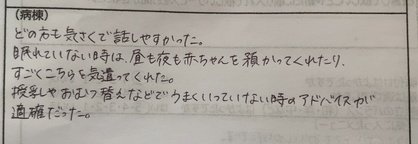 (病棟)
どの方も気さくで話しやすかった。
眠れていない時は、昼も夜も赤ちゃんを預かってくれたり、
すごくこちらを気遣ってくれた。
授乳やおむつ替えなどでうまくいっていない時のアドバイスが
適確だった。